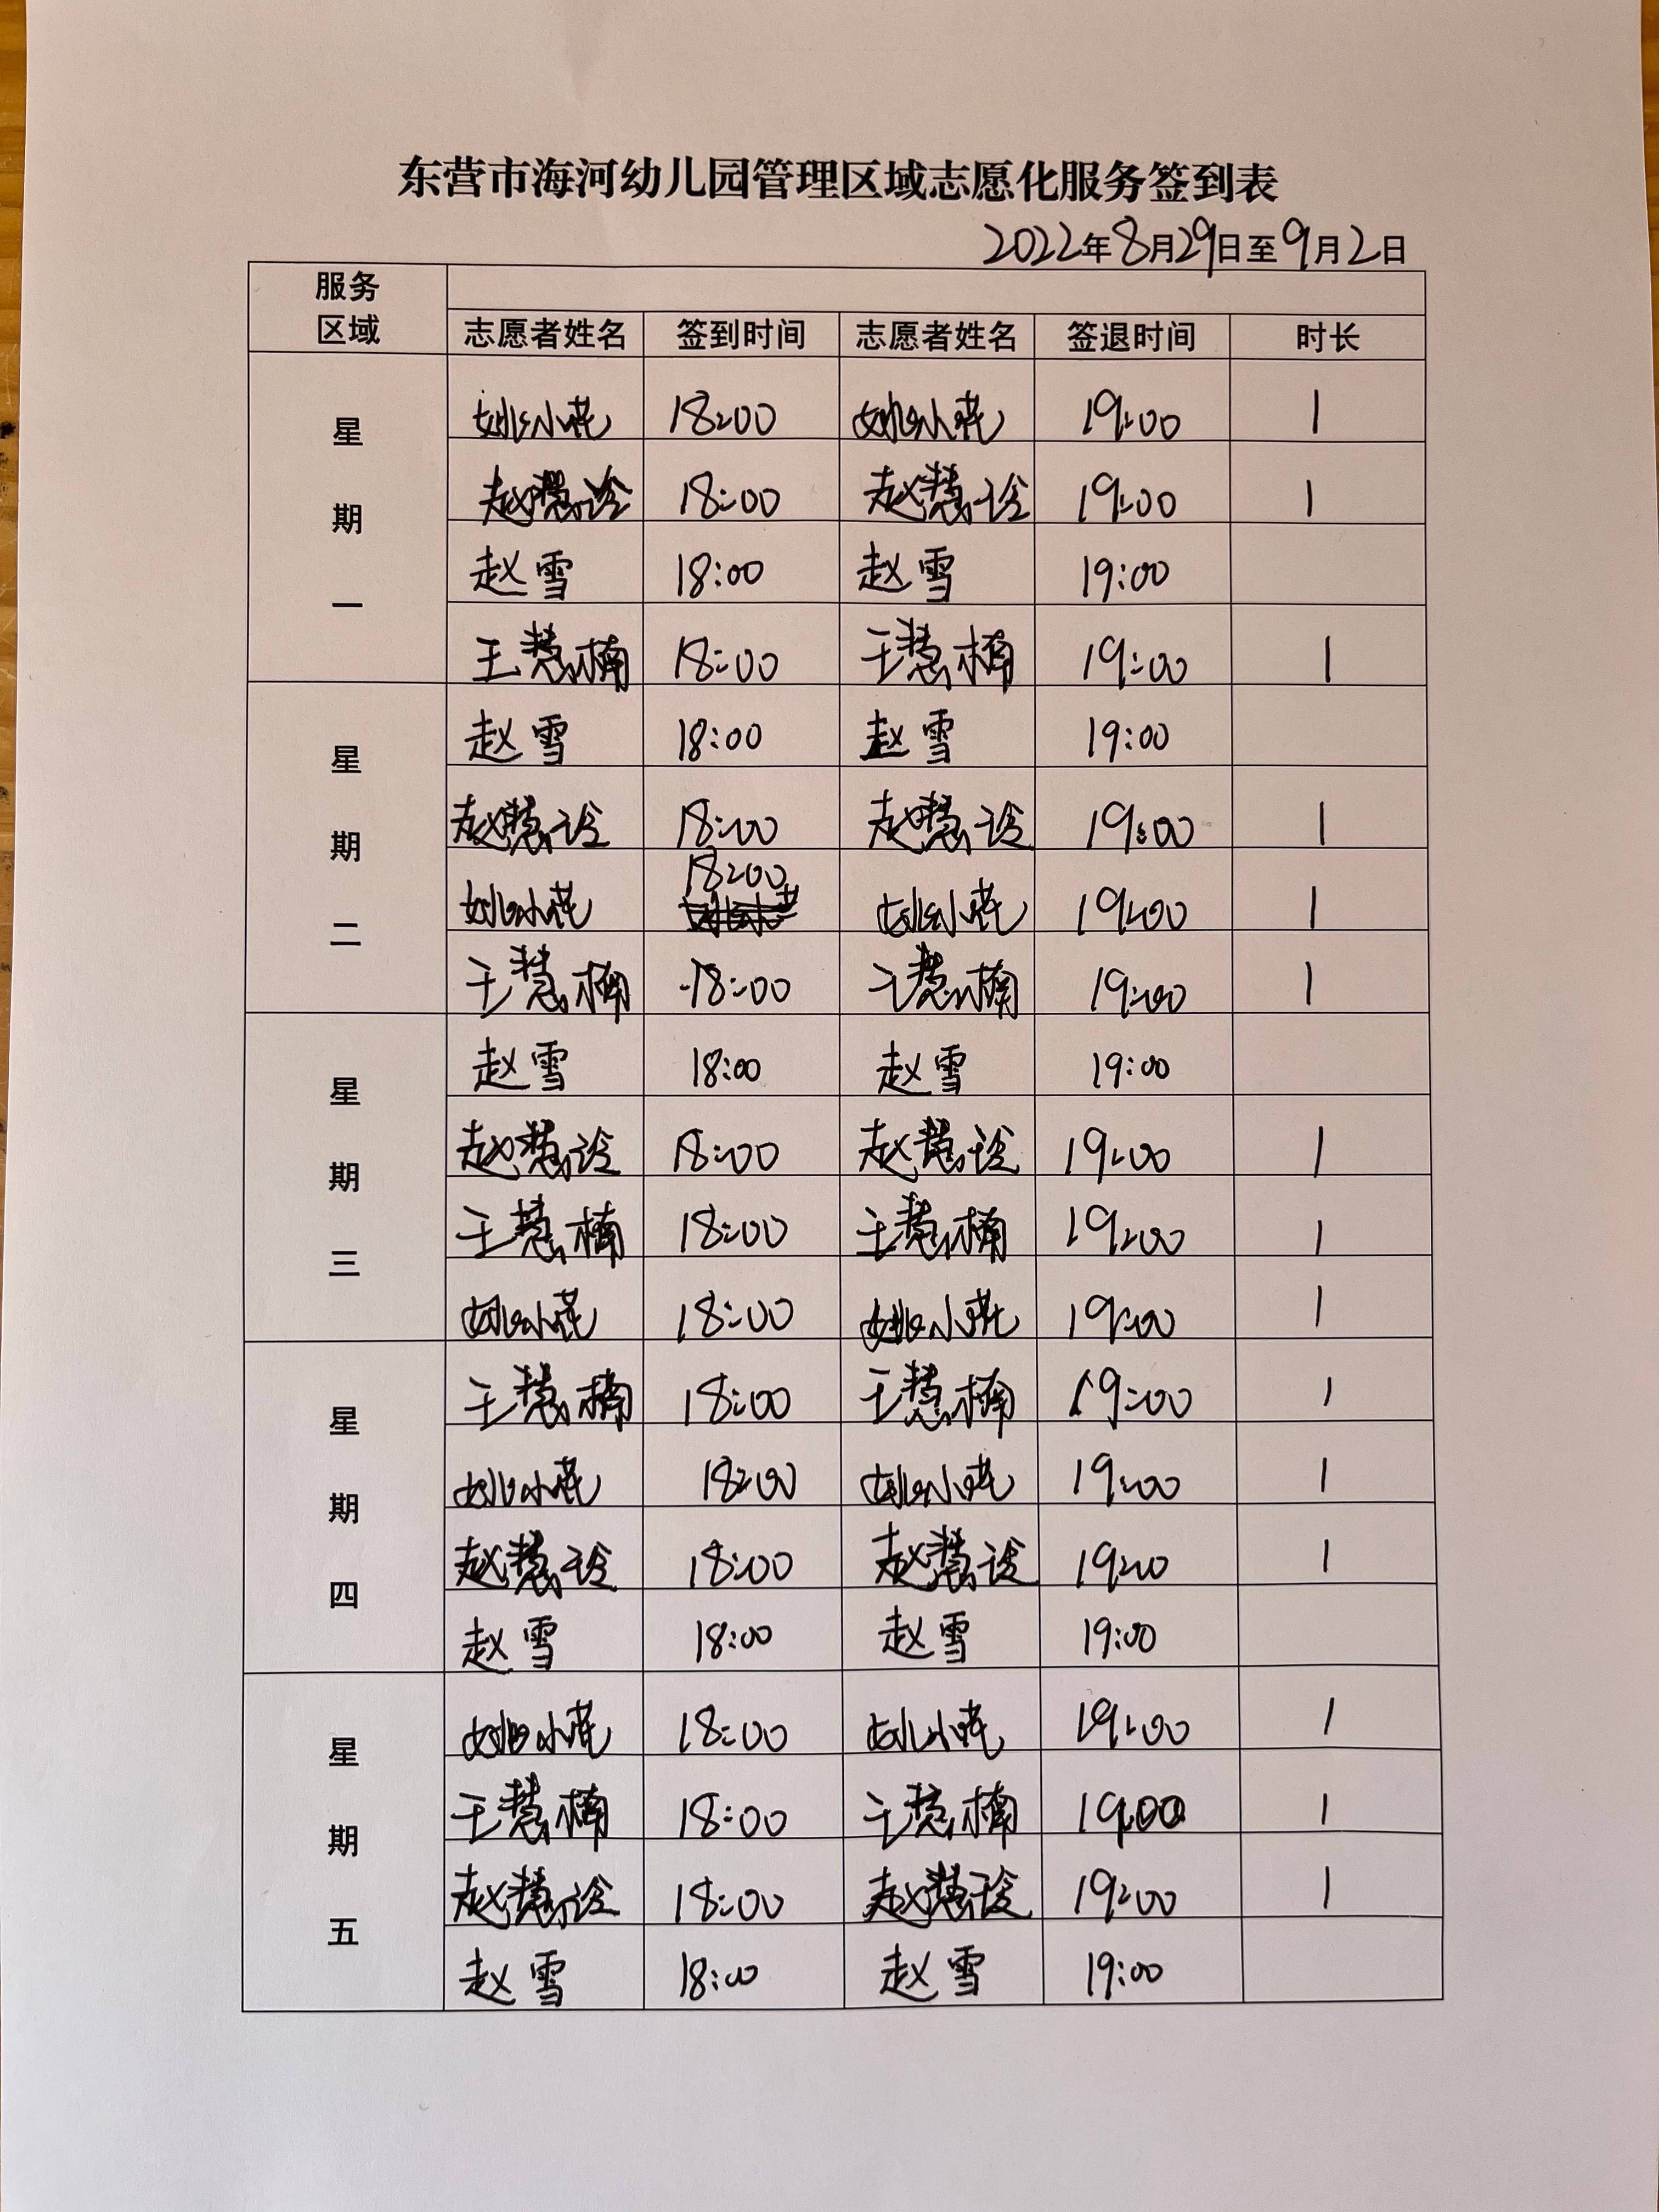 东营市海河幼儿园管理区域志愿化服务签到表
2022年8月29日至9月2日
服务
区域
志愿者姓名 签到时间 志愿者姓名 签退时间 时长
星期一
姚小花 18:00 姚小花 19:00 1
赵慧玲 18:00 赵慧玲 19:00 1
赵雪 18:00 赵雪 19:00
王慧楠 18:00 王慧楠 19:00 1
星期二
赵雪 18:00 赵雪 19:00
赵慧玲 18:00 赵慧玲 19:00 1
姚小花 18:00 姚小花 19:00 1
王慧楠 18:00 王慧楠 19:00 1
星期三
赵雪 18:00 赵雪 19:00
赵慧玲 18:00 赵慧玲 19:00 1
王慧楠 18:00 王慧楠 19:00 1
姚小花 18:00 姚小花 19:00 1
星期四
王慧楠 18:00 王慧楠 19:00 1
姚小花 18:00 姚小花 19:00 1
赵慧玲 18:00 赵慧玲 19:00 1
赵雪 18:00 赵雪 19:00
星期五
姚小花 18:00 姚小花 19:00 1
王慧楠 18:00 王慧楠 19:00 1
赵慧玲 18:00 赵慧玲 19:00 1
赵雪 18:00 赵雪 19:00